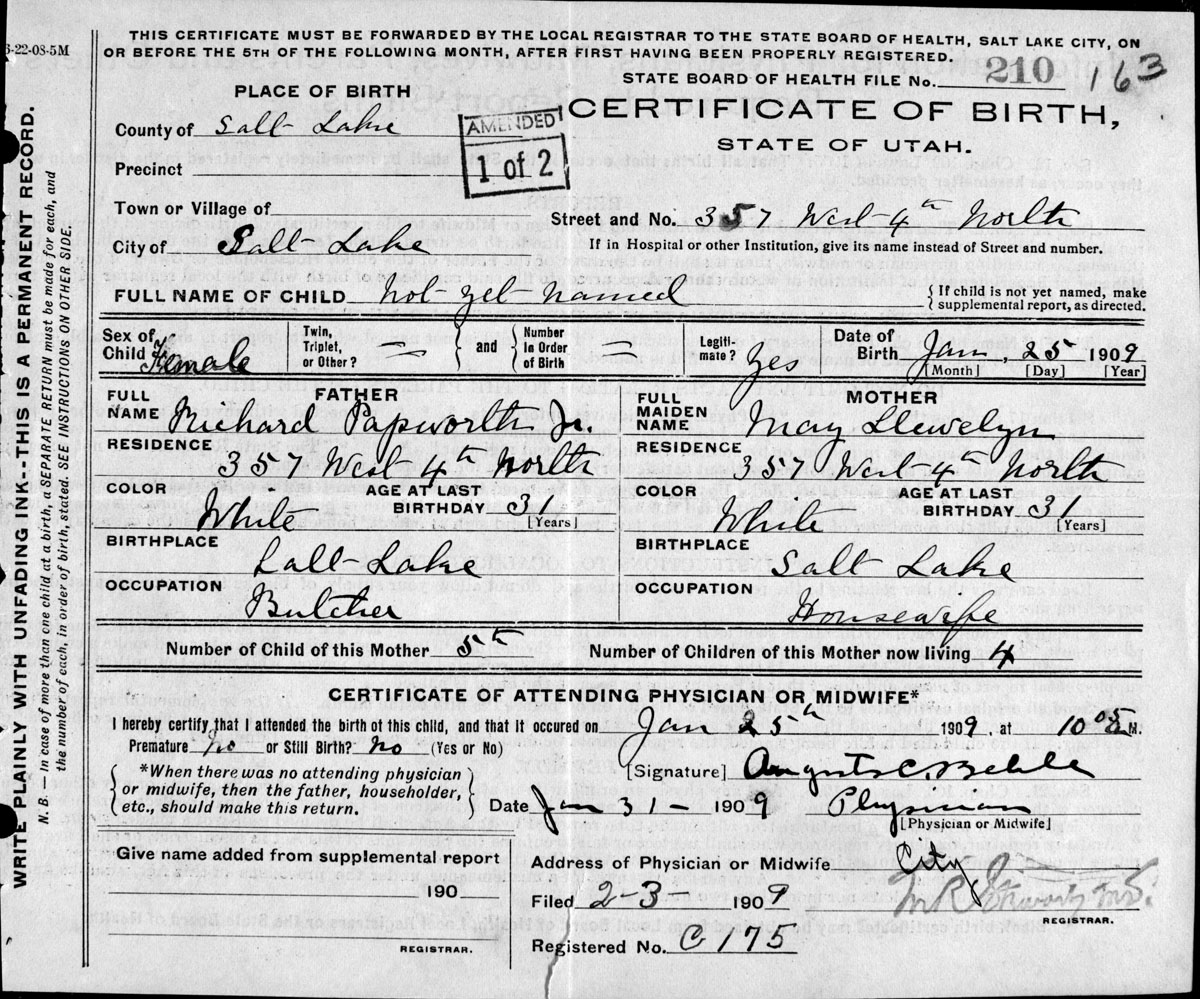 6-22-08-5M
THIS CERTIFICATE MUST BE FORWARDED BY THE LOCAL REGISTRAR TO THE STATE BOARD OF HEALTH, SALT LAKE CITY, ON
OR BEFORE THE 5TH OF THE FOLLOWING MONTH, AFTER FIRST HAVING BEEN PROPERLY REGISTERED.
STATE BOARD OF HEALTH FILE No. 210 163
PLACE OF BIRTH
CERTIFICATE OF BIRTH,
STATE OF UTAH.
County of Salt Lake
AMENDED
1 of 2
Precinct
Town or Village of
Street and No. 357 West 4th North
City of Salt Lake
If in Hospital or other Institution, give its name instead of Street and number.
FULL NAME OF CHILD not yet named
{ If child is not yet named, make
supplemental report, as directed.
Sex of Child Female
Twin, Triplet, or Other? — and Number in Order of Birth —
Legiti-mate? Yes
Date of Birth Jan. 25 1909
[Month] [Day] [Year]
FATHER
FULL NAME Richard Papworth Jr.
RESIDENCE 357 West 4th North
COLOR White
AGE AT LAST BIRTHDAY 31
[Years]
BIRTHPLACE Salt Lake
OCCUPATION Butcher
MOTHER
FULL MAIDEN NAME May Llewelyn
RESIDENCE 357 West 4th North
COLOR White
AGE AT LAST BIRTHDAY 31
[Years]
BIRTHPLACE Salt Lake
OCCUPATION Housewife
Number of Child of this Mother 5th
Number of Children of this Mother now living 4
CERTIFICATE OF ATTENDING PHYSICIAN OR MIDWIFE*
I hereby certify that I attended the birth of this child, and that it occured on Jan 25th 1909, at 10 05 M.
Premature No or Still Birth? No (Yes or No)
*When there was no attending physician
or midwife, then the father, householder,
etc., should make this return.
[Signature]
Date Jan 31 - 1909 Physician
[Physician or Midwife]
Give name added from supplemental report
190
REGISTRAR.
Address of Physician or Midwife City
Filed 2-3 1909
REGISTRAR.
Registered No. C 175
WRITE PLAINLY WITH UNFADING INK--THIS IS A PERMANENT RECORD.
N. B. — In case of more than one child at a birth, a SEPARATE RETURN must be made for each, and
the number of each, in order of birth, stated. SEE INSTRUCTIONS ON OTHER SIDE.